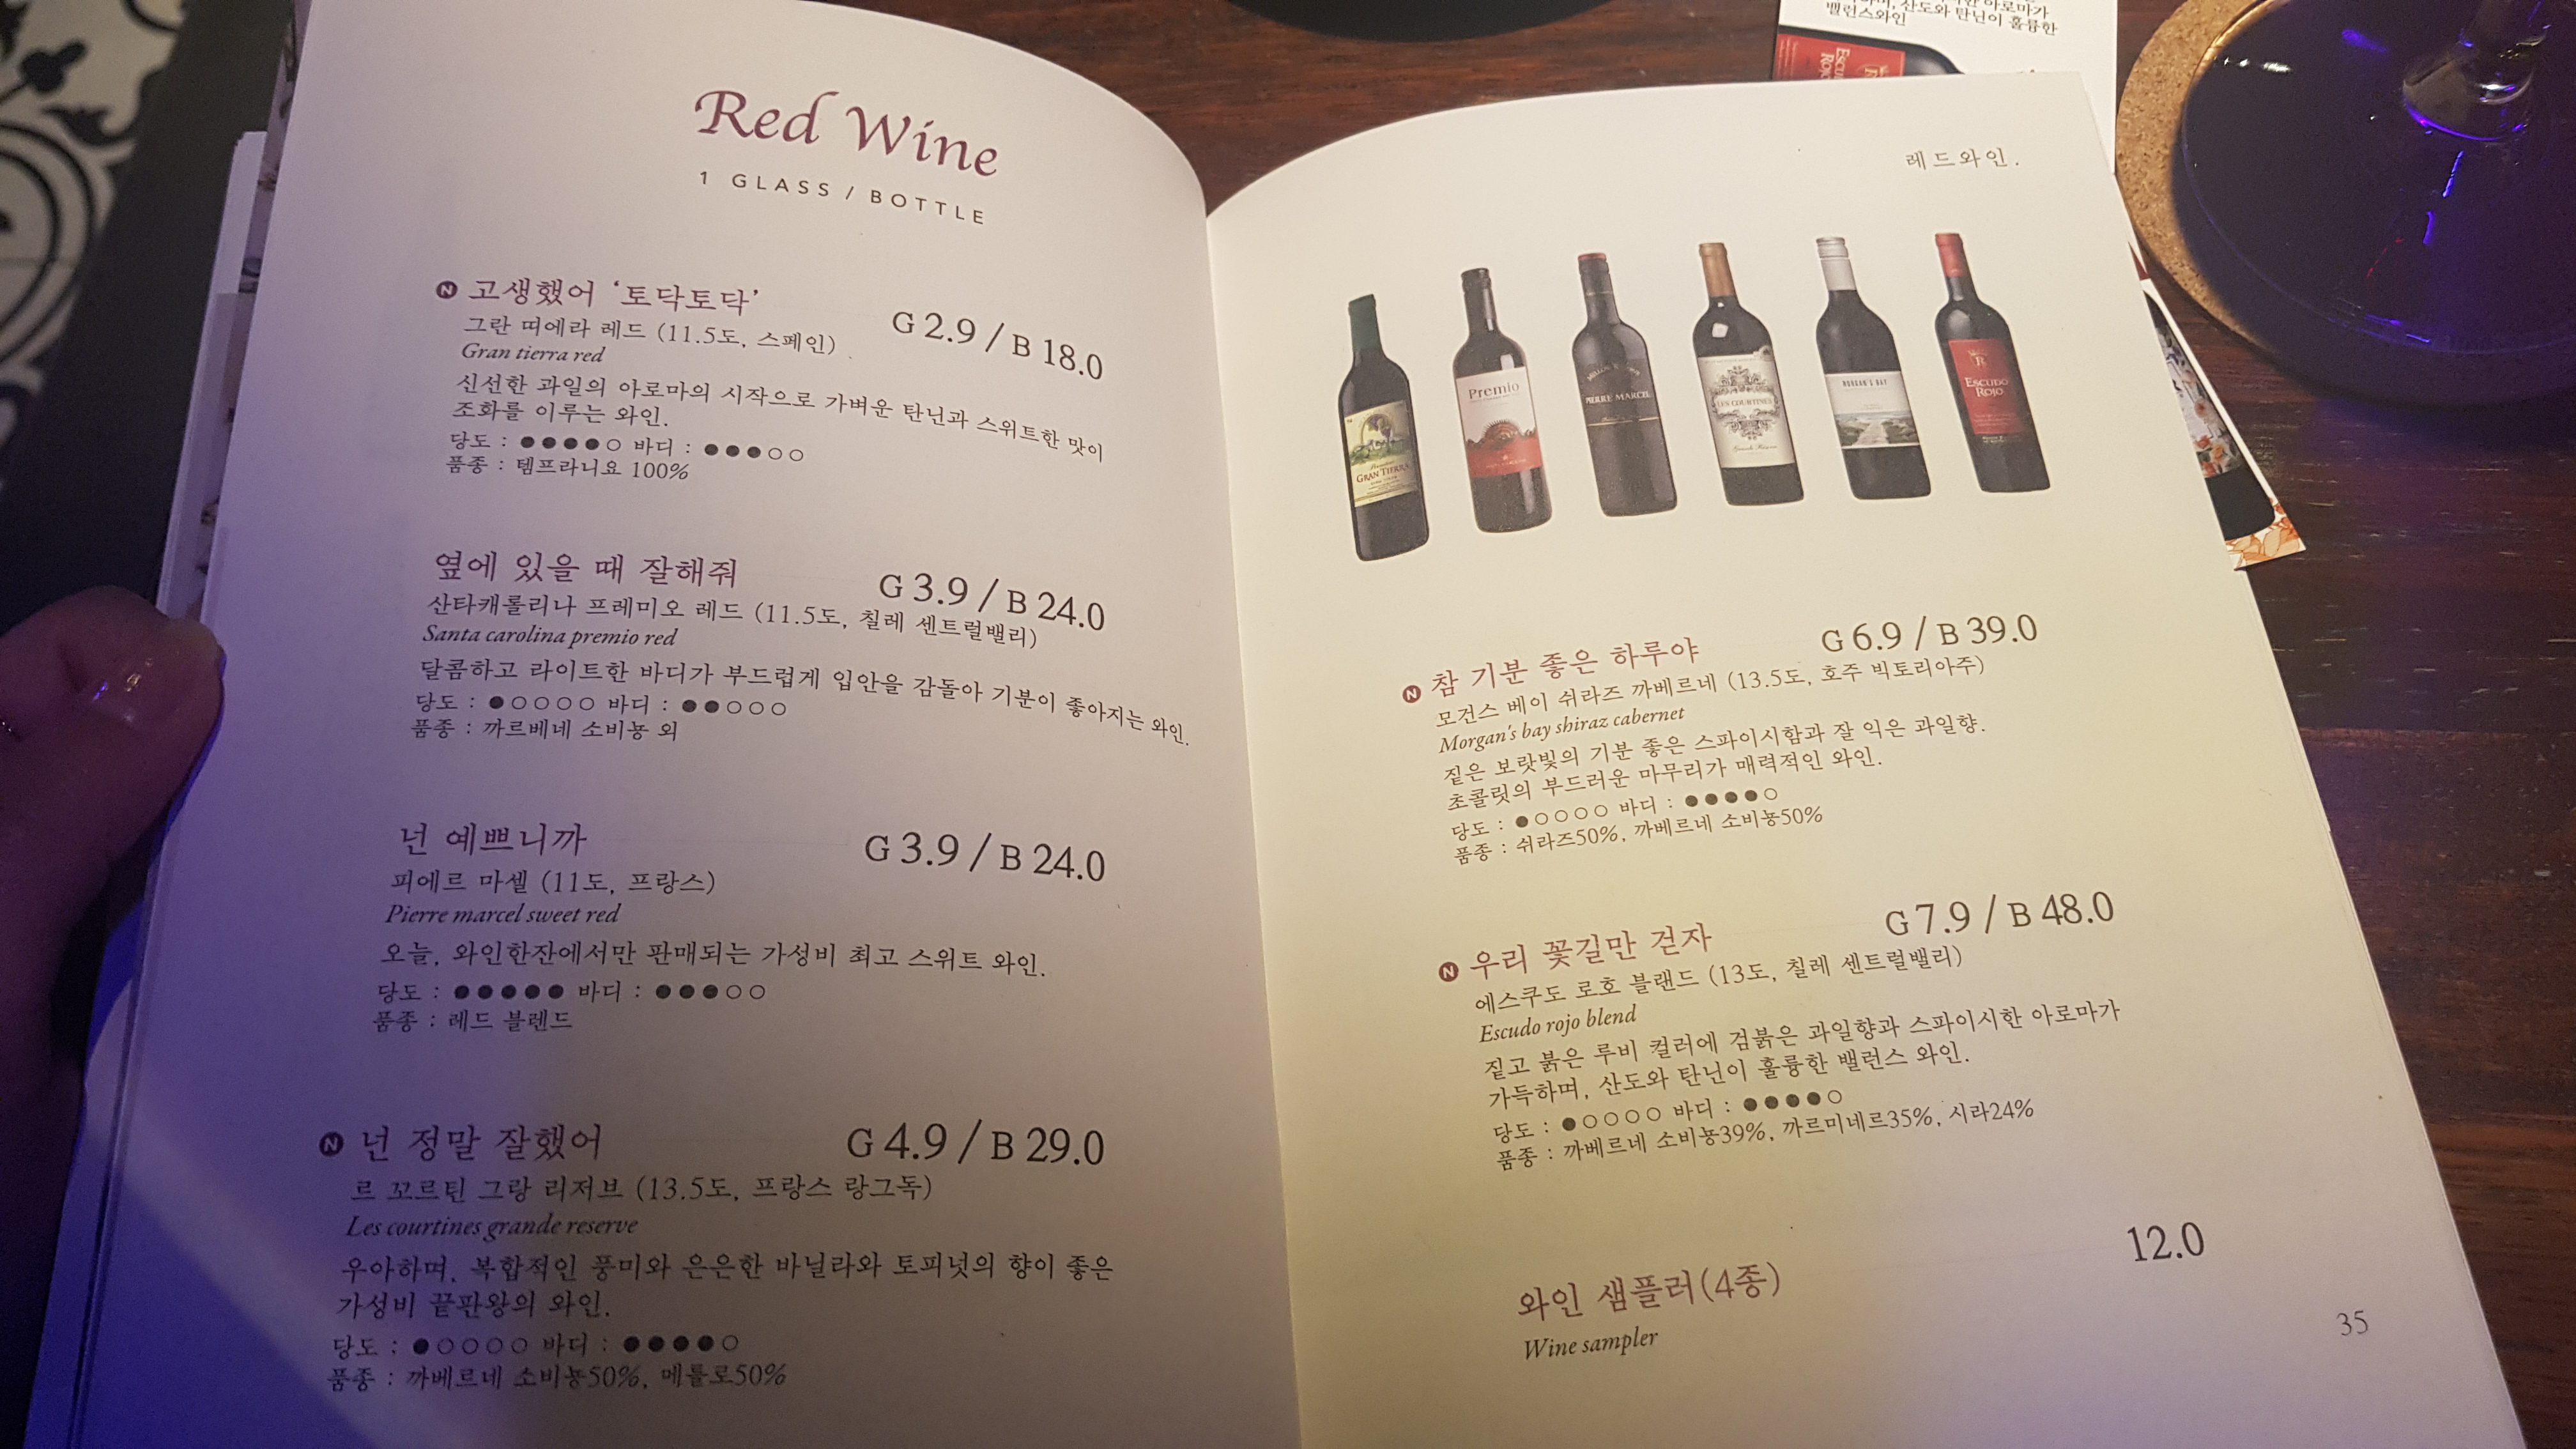 Red Wine
1 GLASS / BOTTLE
N 고생했어 '토닥토닥'
G 2.9 / B 18.0
그란 띠에라 레드 (11.5도, 스페인)
Gran tierra red
신선한 과일의 아로마의 시작으로 가벼운 탄닌과 스위트한 맛이
조화를 이루는 와인.
당도 : ●●●●○ 바디 : ●●●○○
품종 : 템프라니요 100%
옆에 있을 때 잘해줘
G 3.9 / B 24.0
산타캐롤리나 프레미오 레드 (11.5도, 칠레 센트럴밸리)
Santa carolina premio red
달콤하고 라이트한 바디가 부드럽게 입안을 감돌아 기분이 좋아지는 와인.
당도 : ●○○○○ 바디 : ●●○○○
품종 : 까르베네 소비뇽 외
넌 예쁘니까
G 3.9 / B 24.0
피에르 마셀 (11도, 프랑스)
Pierre marcel sweet red
오늘, 와인한잔에서만 판매되는 가성비 최고 스위트 와인.
당도 : ●●●●● 바디 : ●●●○○
품종 : 레드 블렌드
N 넌 정말 잘했어
G 4.9 / B 29.0
르 꼬르틴 그랑 리저브 (13.5도, 프랑스 랑그독)
Les courtines grande reserve
우아하며, 복합적인 풍미와 은은한 바닐라와 토피넛의 향이 좋은
가성비 끝판왕의 와인.
당도 : ●○○○○ 바디 : ●●●●○
품종 : 까베르네 소비뇽50%, 메를로50%
레드와인.
GRAN TIERRA
Premio
PIERRE MARCEL
LES COURTINES
Grande Réserve
MORGAN'S BAY
R
ESCUDO
ROJO
N 참 기분 좋은 하루야
G 6.9 / B 39.0
모건스 베이 쉬라즈 까베르네 (13.5도, 호주 빅토리아주)
Morgan's bay shiraz cabernet
짙은 보랏빛의 기분 좋은 스파이시함과 잘 익은 과일향.
초콜릿의 부드러운 마무리가 매력적인 와인.
당도 : ●○○○○ 바디 : ●●●●○
품종 : 쉬라즈50%, 까베르네 소비뇽50%
N 우리 꽃길만 걷자
G 7.9 / B 48.0
에스쿠도 로호 블랜드 (13도, 칠레 센트럴밸리)
Escudo rojo blend
짙고 붉은 루비 컬러에 검붉은 과일향과 스파이시한 아로마가
가득하며, 산도와 탄닌이 훌륭한 밸런스 와인.
당도 : ●○○○○ 바디 : ●●●●○
품종 : 까베르네 소비뇽39%, 까르미네르35%, 시라24%
와인 샘플러(4종)
12.0
Wine sampler
35
아로마가
산도와 탄닌이 훌륭한
밸런스와인